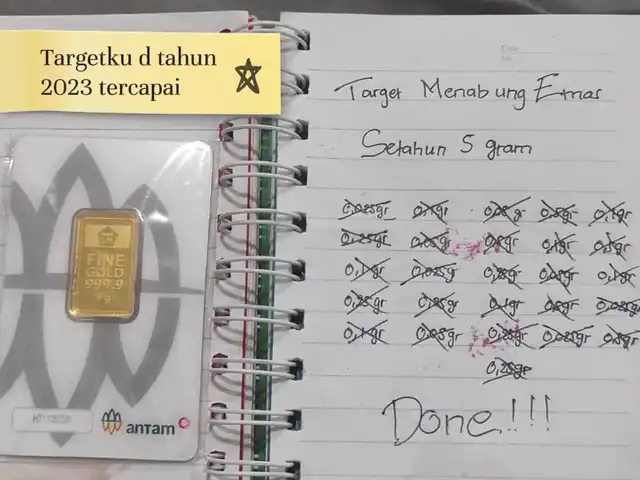 Targetku d tahun
2023 tercapai
Target Menabung Emas
Setahun 5 gram
0,025gr 0,1gr 0,05gr 0,5gr 0,1gr
0,25gr 0,05gr 0,1gr
0,1gr 0,025gr 0,1gr
0,25gr 0,25gr 0,1gr 0,025gr
0,1gr 0,05gr 0,25gr 0,025gr 0,5gr
0,25gr
Done!!!
FINE
GOLD
999.9
5 g
antam